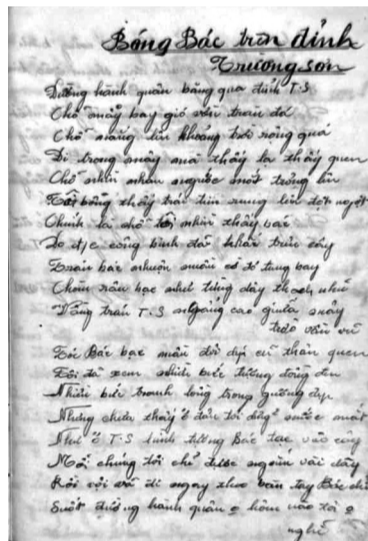 Bóng Bác trên đỉnh
Trường sơn
Đường hành quân băng qua đỉnh T.S
Chỗ mây bay gió vờn trên đá
Chỗ nắng lên khoảng trời rộng quá
Đi trong mây mà thấy lạ thấy quen
Chỗ nhìn nhau người mới trông lên
bỗng thấy trái tim rung lên đột ngột
Chính là chỗ tôi nhìn thấy bác
Do đ/c công binh đã khắc trên cây
Trán bác nhuộm muôn cờ đỏ tung bay
Chòm râu bạc như từng dây thạch nhũ
Vầng trán T.S mang cao giữa mây
trời vần vũ
Tóc Bác bạc màn đôi dép cũ thân quen
Tôi đã xem nhiều bức tượng đồng đen
Nhiều bức tranh lồng trong gương đẹp
Nhưng chưa thấy ở đâu tôi nước mắt
Như ở T.S hình tượng Bác tạc vào cây
Mỗi chúng tôi chỉ được ngắm vài dây
Rồi vội vã đi ngay theo vẫn tay Bác chỉ
Suốt đường hành quân hôm nào tôi
nghĩ